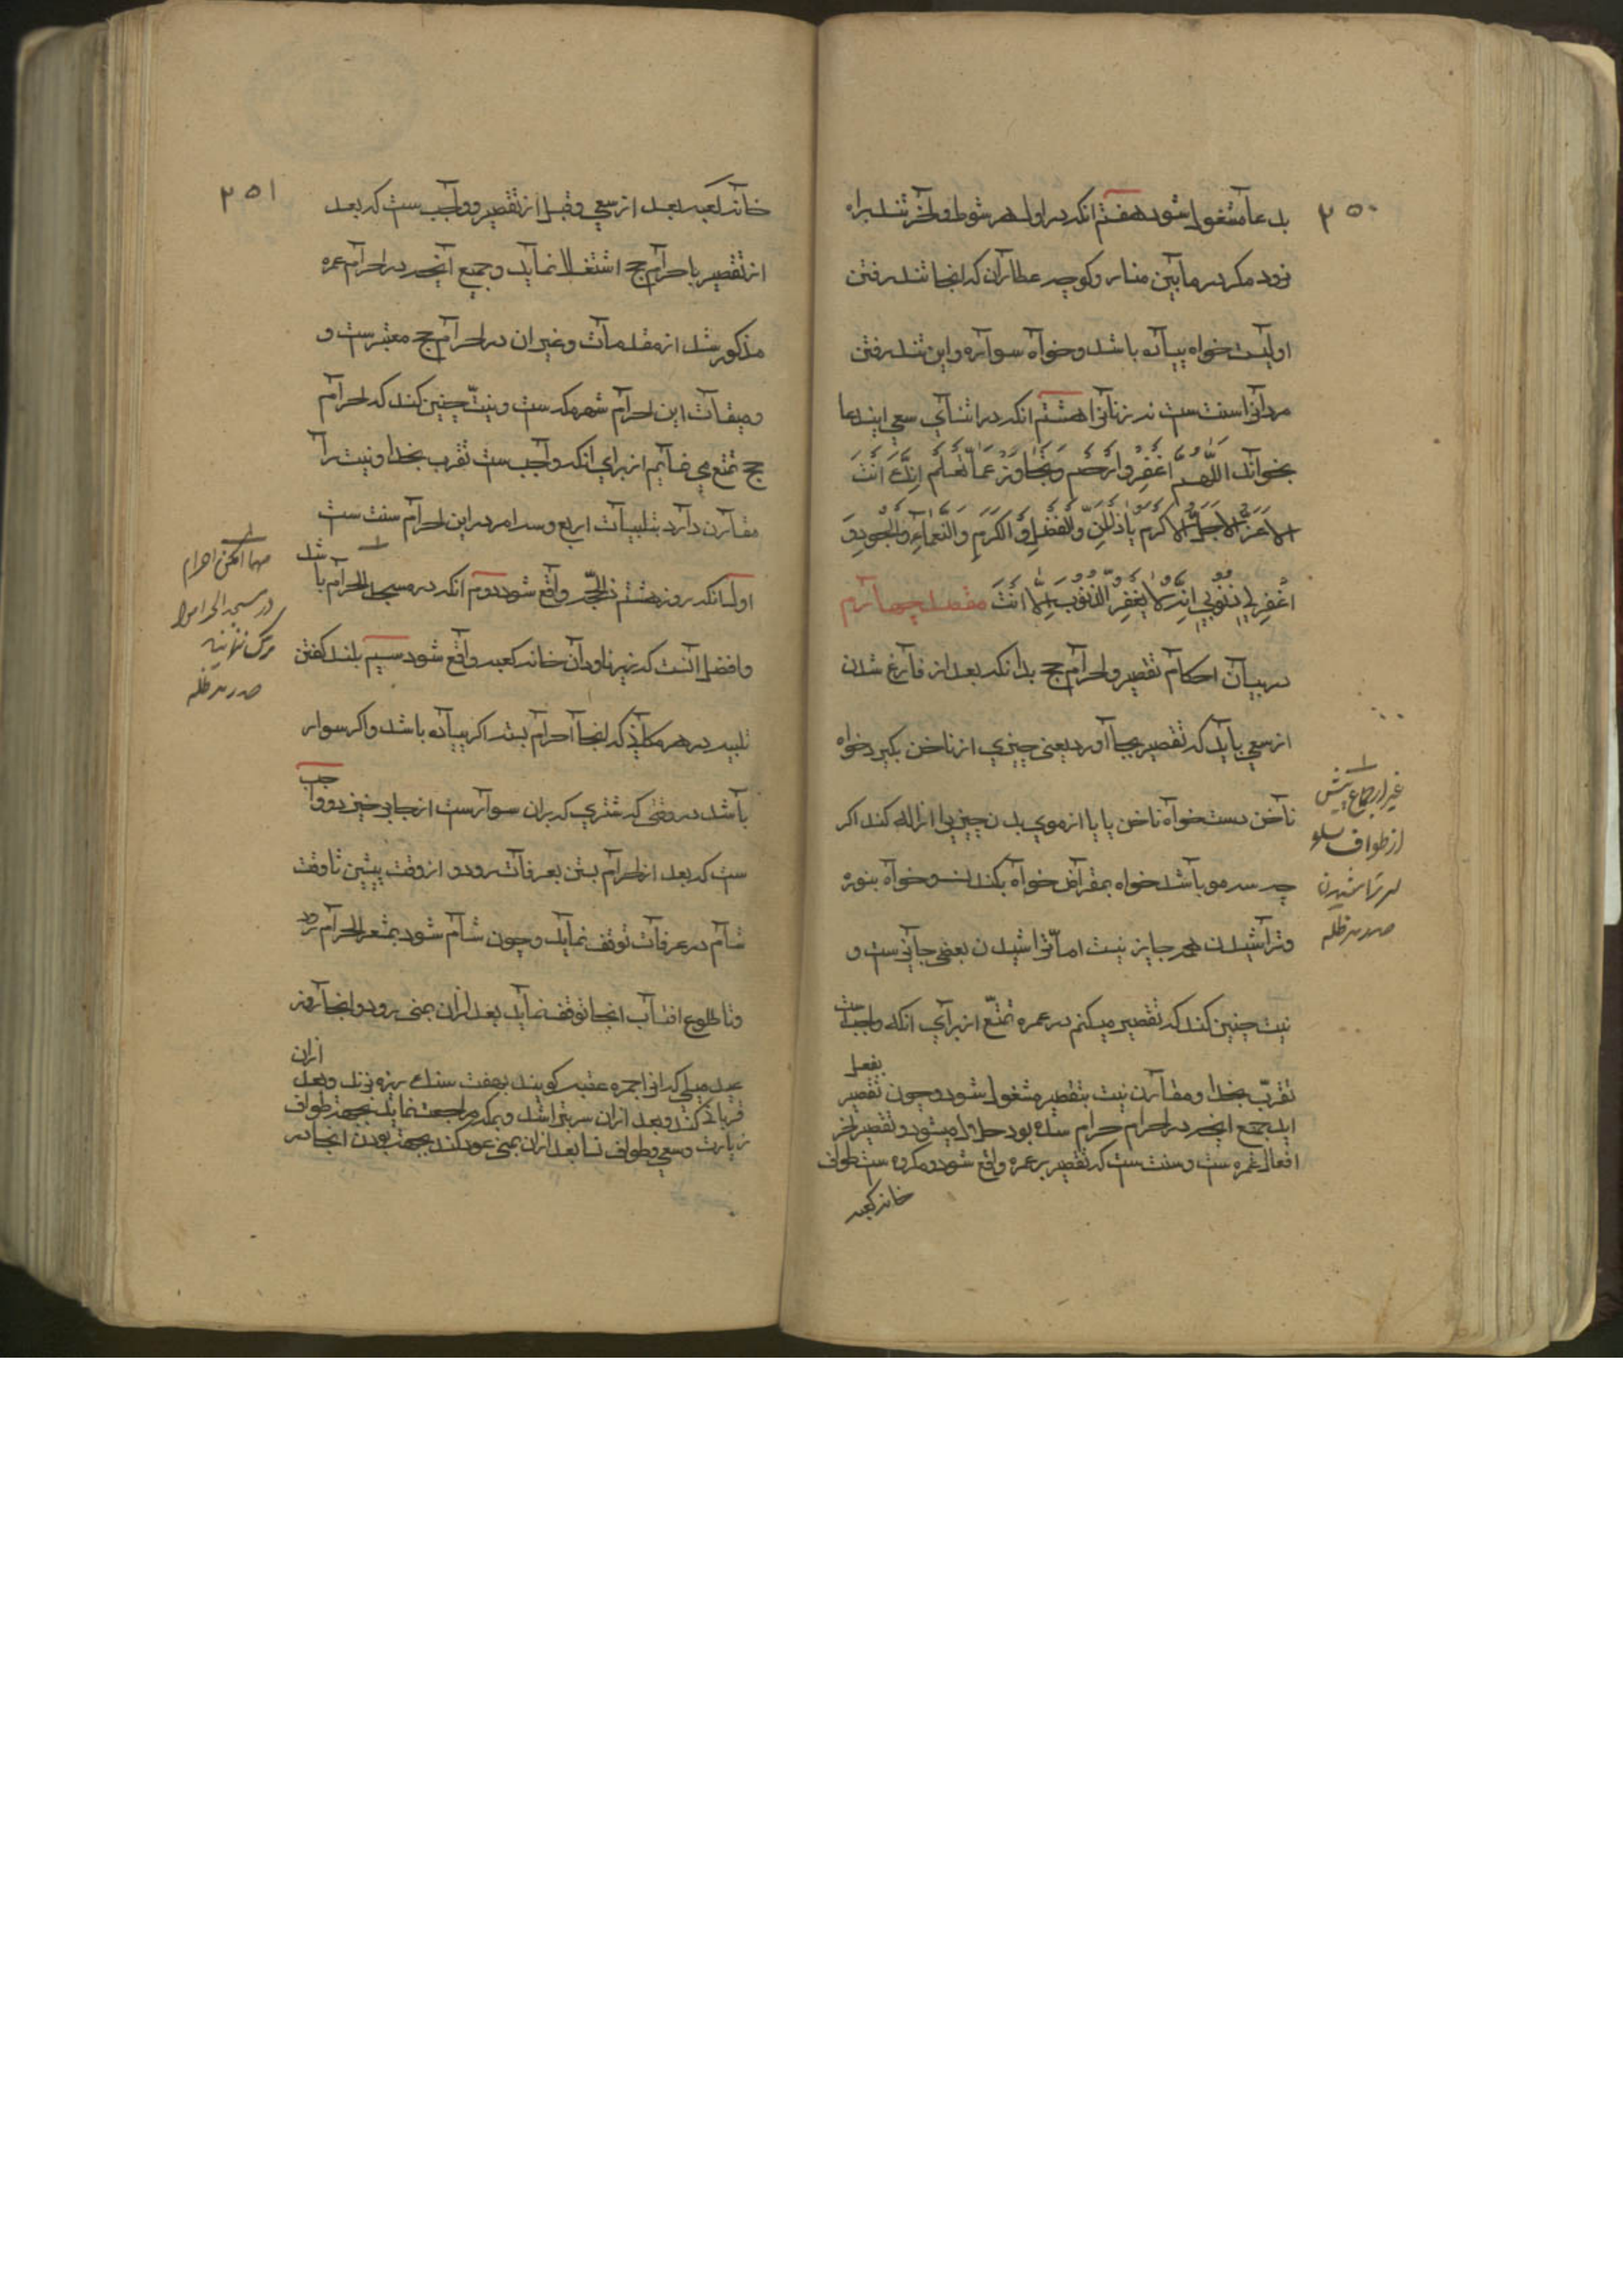 ۲۵۰
بدعا مشغول شود هفتم انکه در اول هر شوط و آخر تند براه
رود مکر در مابین مناره و کوچه عطاران که انجا تند رفتن
اولیست خواه پیاده باشد و خواه سواره و این تند رفتن
مردانرا سنت ست نه زنانرا هشتم انکه در اثنای سعی ایندعا
بخواند اللّهم اغْفِرْ وارْحَم وتَجاوَزْ عمّا تَعلَم اِنَّكَ اَنْتَ
الاعَزُّ الاجَلُّ الاكرم یا ذا المَنِّ والفَضْلِ والكَرَمِ والنَّعماءِ والجُودِ
اغْفِر لِي ذُنُوبي اِنَّه لا یَغفِرُ الذُّنُوبَ اِلّا اَنْتَ مقصد چهارم
در بیان احکام تقصیر و احرام حج بدانکه بعد از فارغ شدن
از سعی باید که تقصیر بجا آورد یعنی چیزی از ناخن بکیرد خواه
ناخن دست خواه ناخن پا یا از موی بدن چیزیرا ازاله کند اکر
چه سه مو باشد خواه بمقراض خواه بکندن و خواه بنوره
و تراشیدن هم جایز نیست اما تراشیدن بعضی جایزست و
نیت چنین کند که تقصیر میکنم در عمره تمتّع از برای انکه واجب ست
تقرّب بخدا و مقارن نیت بتقصیر مشغول شود و چون تقصیر بفعل
اید جمیع انچه در احرام حرام شده بود حلال میشود و تقصیر آخر
افعال عمره ست و سنت ست که تقصیر بر عمره واقع شود و مکروه ست طواف
خانه کعبه
غیر از جماع پیش
از طواف
سر تراشیدن
مدظله
۲۵۱
خانه کعبه بعد از سعی و قبل از تقصیر و واجب ست که بعد
از تقصیر باحرام حج اشتغال نماید و جمیع آنچه در احرام عمره
مذکور شد از مقدمات و غیر ان در احرام حج معتبرست و
میقات این احرام شهر مکه ست و نیّت چنین کند که احرام
حج تمتع می نمایم از برای انکه واجب ست تقرب بخدا و نیت را
مقارن دارد بتلبیات اربع و سه امر در این احرام سنت ست
اول انکه روز هشتم ذی الحجّه واقع شود دوم انکه در مسجد الحرام باشد
و افضل آنست که زیر ناودان خانه کعبه واقع شود سیم بلند کفتن
تلبیه در هر مکانی که انجا احرام بسته اکر پیاده باشد و اکر سوار
باشد در وقتی که شتری که بران سوارست از جا بر خیزد و واجب
ست که بعد از احرام بستن بعرفات رود و از وقت پیشین تا وقت
شام در عرفات توقف نماید و چون شام شود بمشعر الحرام رود
و تا طلوع افتاب انجا توقف نماید بعد ازان بمنی رود و انجا روز
عید میلی که انرا جمره عقبه کویند بهفت سنك ریزه بزند و بعد ازان
قربانی کند و بعد ازان سر بتراشد و بمکه مراجعت نماید بجهة طواف
زیارت و سعی و طواف نسا بعد ازان بمنی عود کند بجهة بودن انجا در
مهما امکن احرام
در مسجد الحرام را
ترک ننمایند
مدظله